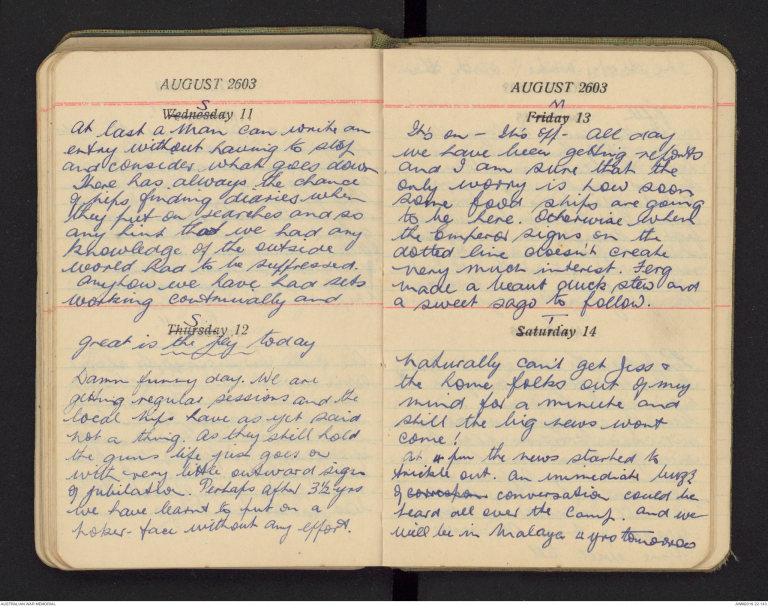 AUGUST 2603
S
Wednesday 11
At last a man can write an
entry without having to stop
and consider what goes down
There has always the chance
of nips finding diaries when
they put on searches and so
any hint that we had any
knowledge of the outside
world had to be suppressed.
Anyhow we have had sets
working continually and
S
Thursday 12
great is the joy today
Damn funny day. We are
getting regular sessions and the
local nips have as yet said
not a thing. As they still hold
the guns life just goes on
with very little outward signs
of jubilation. Perhaps after 3½ yrs
we have learnt to put on a
poker-face without any effort.
AUGUST 2603
M
Friday 13
It's on - It's off - All day
we have been getting reports
and I am sure that the
only worry is how soon
some food ships are going
to be here. Otherwise when
the Emperor signs on the
dotted line doesn't create
very much interest. Ferg
made a beaut duck stew and
a sweet sago to follow.
T
Saturday 14
Naturally can't get Jess &
the home folks out of my
mind for a minute and
still the big news wont
come!
At 4 pm the news started to
trickle out. An immediate buzz
of conversation could be
heard all over the camp. and we
will be in Malaya 4 yrs tomorrow
AUSTRALIAN WAR MEMORIAL